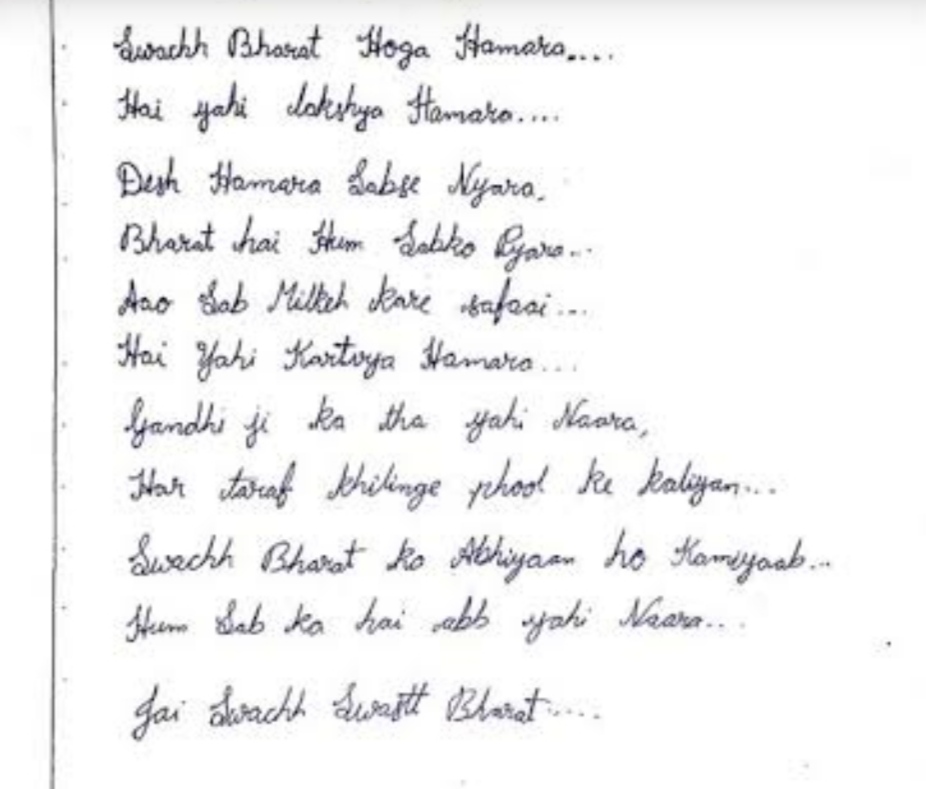 Swachh Bharat Hoga Hamara....
Hai yahi lakshya Hamara....
Desh Hamara Sabse Nyara,
Bharat hai Hum Sabko Pyara...
Aao Sab Milkeh kare safaai...
Hai Yahi Kartvya Hamara...
Gandhi ji ka tha yahi Naara,
Har taraf khilinge phool ke kaliyan...
Swachh Bharat ko Abhiyaan ho Kamiyaab...
Hum Sab ka hai abb yahi Naara...
Jai Swachh Swastt Bharat.....